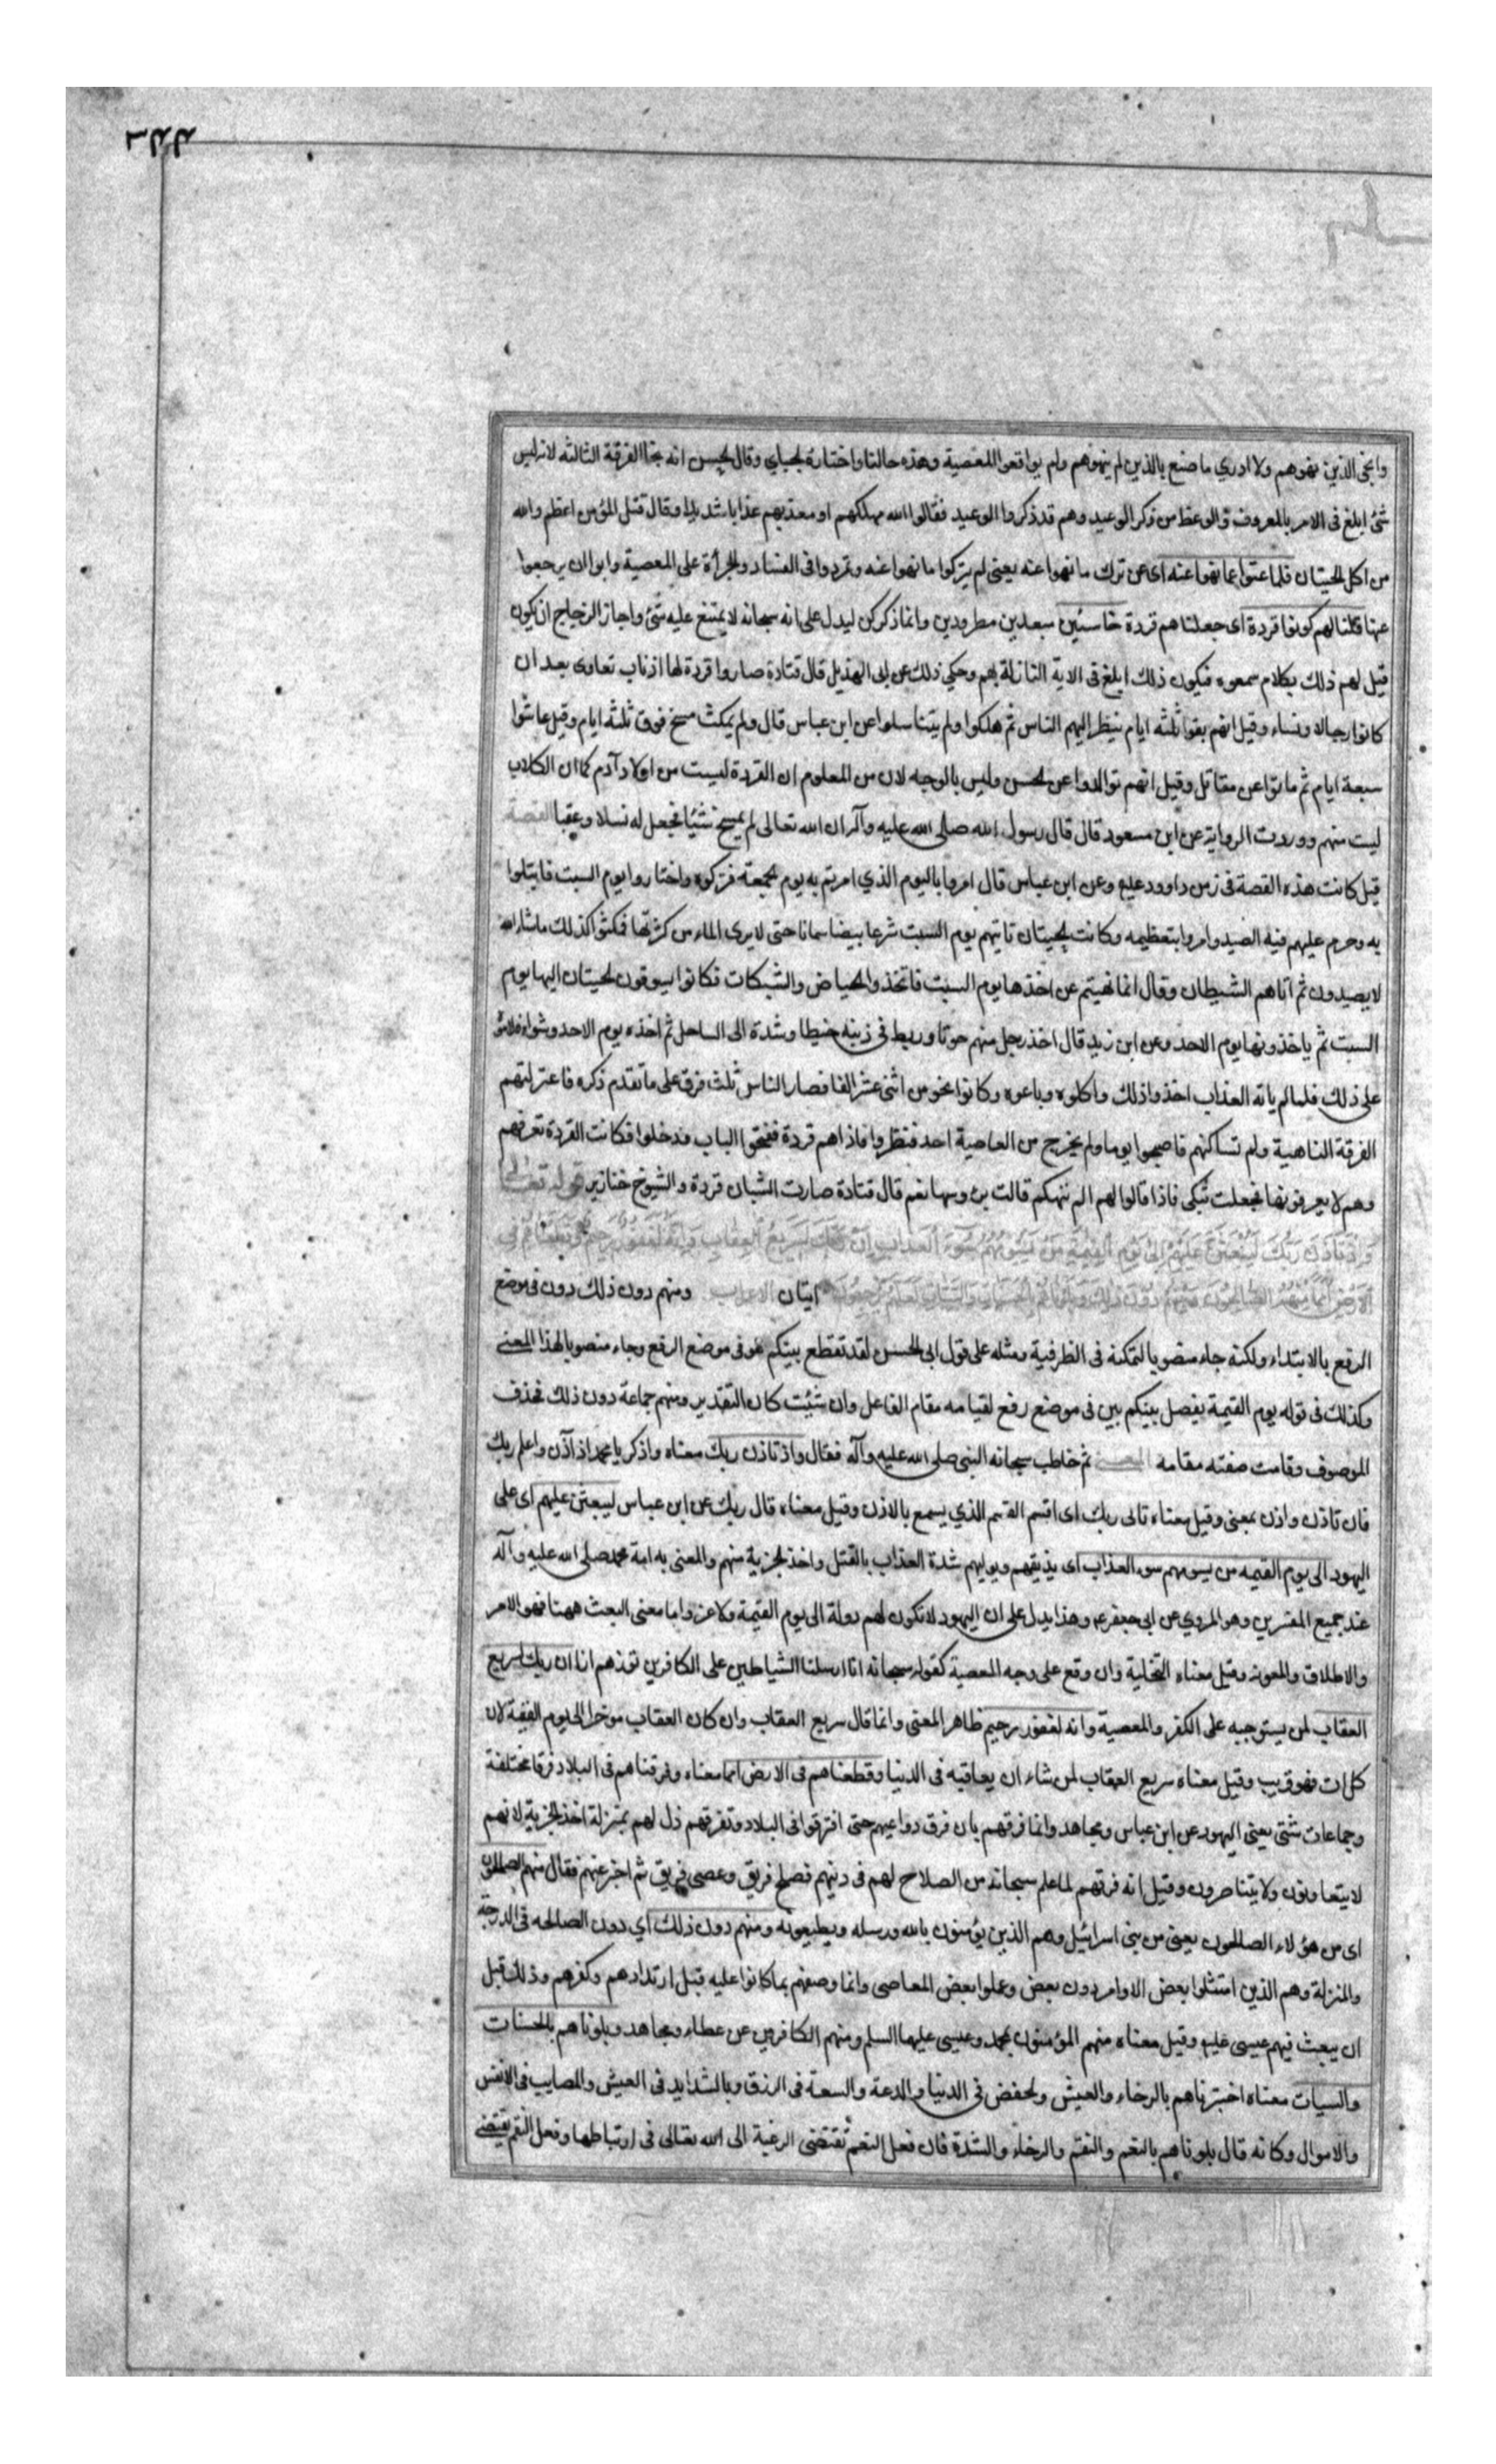 وانجى الذين نهوهم ولا ادري ما صنع بالذين لم ينهوهم ولم يواقعوا المعصية وهذه حالنا واختاره الجبايي وقال الحسن انه نجا الفرقة الثالثه لانه ليس
شئ ابلغ فى الامر بالمعروف والوعظ من ذكر الوعيد وهم قد ذكروا الوعيد فقالوا الله مهلكهم او معذبهم عذابا شديدا وقال قتل المؤمن اعظم والله
من اكل الحيتان فلما عتوا عما نهوا عنه اى عن ترك ما نهوا عنه يعنى لم يتركوا ما نهوا عنه وتمردوا فى الفساد والجرأة على المعصية وابوا ان يرجعوا
عنها قلنا لهم كونوا قردة اى جعلناهم قردة خاسئين مبعدين مطرودين وانما ذكر كن ليدل على انه سبحانه لا يمتنع عليه شئ واجاز الزجاج ان يكون
قيل لهم ذلك بكلام سمعوه فيكون ذلك ابلغ فى الاية النازلة بهم وحكي ذلك عن ابى الهذيل قال قتادة صاروا قردة لها اذناب تعاوى بعد ان
كانوا رجالا ونساء وقيل انهم بقوا ثلثه ايام ينظر اليهم الناس ثم هلكوا ولم يتناسلوا عن ابن عباس قال ولم يمكث مسخ فوق ثلثه ايام وقيل عاشوا
سبعة ايام ثم ماتوا عن مقاتل وقيل انهم توالدوا عن الحسن وليس بالوجه لان من المعلوم ان القردة ليست من اولاد آدم كما ان الكلاب
ليست منهم ووردت الرواية عن ابن مسعود قال قال رسول الله صلى الله عليه وآله ان الله تعالى لم يمسخ شيئا فجعل له نسلا وعقبا القصة
قيل كانت هذه القصة فى زمن داوود عليه وعن ابن عباس قال امروا باليوم الذي امرتم به يوم الجمعة فتركوه واختاروا يوم السبت فابتلوا
به وحرم عليهم فيه الصيد وامروا بتعظيمه وكانت الحيتان تاتيهم يوم السبت شرعا بيضا سمانا حتى لا يرى الماء من كثرتها فمكثوا كذلك ما شاء الله
لا يصيدون ثم اتاهم الشيطان وقال انما نهيتم عن اخذها يوم السبت فاتخذوا الحياض والشبكات فكانوا يسوقون الحيتان اليها يوم
السبت ثم ياخذونها يوم الاحد وعن ابن زيد قال اخذ رجل منهم حوتا وربط فى ذنبه خيطا وشده الى الساحل ثم اخذه يوم الاحد وشواه فلاموه
على ذلك فلما لم ياته العذاب اخذوا ذلك واكلوه وباعوه وكانوا نحو من اثنى عشر الفا فصار الناس ثلث فرق على ما تقدم ذكره فاعتزلتهم
الفرقة الناهية ولم تساكنهم فاصبحوا يوما ولم يخرج من العاصية احد فنظروا فاذا هم قردة ففتحوا الباب فدخلوا فكانت القردة تعرفهم
وهم لا يعرفونها فجعلت تبكى فاذا قالوا لهم الم ننهكم قالت برؤسها نعم قال قتادة صارت الشبان قردة والشيوخ خنازير قوله تعالى
واذ تاذن ربك ليبعثن عليهم الى يوم القيمة من يسومهم سوء العذاب ان ربك لسريع العقاب وانه لغفور رحيم وقطعناهم فى
الارض امما منهم الصالحون ومنهم دون ذلك وبلوناهم بالحسنات والسيات لعلهم يرجعون ايتان الاعراب ومنهم دون ذلك دون فى موضع
الرفع بالابتداء ولكنه جاء منصوبا لتمكنه فى الظرفية ومثله على قول ابى الحسن لقد تقطع بينكم هو فى موضع الرفع وجاء منصوبا لهذا المعنى
وكذلك فى قوله يوم القيمة يفصل بينكم بين فى موضع رفع لقيامه مقام الفاعل وان شئت كان التقدير ومنهم جماعة دون ذلك فحذف
الموصوف وقامت صفته مقامه المعنى ثم خاطب سبحانه النبى صلى الله عليه وآله فقال واذ تاذن ربك معناه واذكر يا محمد اذ آذن واعلم ربك
فان تاذن واذن بمعنى وقيل معناه تالى ربك اى اقسم القسم الذي يسمع بالاذن وقيل معناه قال ربك عن ابن عباس ليبعثن عليهم اى على
اليهود الى يوم القيمه من يسومهم سوء العذاب اى يذيقهم ويوليهم شدة العذاب بالقتل واخذ الجزية منهم والمعنى به امة محمد صلى الله عليه وآله
عند جميع المفسرين وهو المروي عن ابى جعفر ع وهذا يدل على ان اليهود لا تكون لهم دولة الى يوم القيمة ولا عز واما معنى البعث ههنا فهو الامر
والاطلاق والمعونة وقيل معناه التخلية وان وقع على وجه المعصية كقوله سبحانه انا ارسلنا الشياطين على الكافرين تؤزهم ازا ان ربك لسريع
العقاب لمن يستوجبه على الكفر والمعصية وانه لغفور رحيم ظاهر المعنى وانما قال سريع العقاب وان كان العقاب موخرا الى يوم القيمة لان
كل ات فهو قريب وقيل معناه سريع العقاب لمن شاء ان يعاقبه فى الدنيا وقطعناهم فى الارض امما معناه وفرقناهم فى البلاد فرقا مختلفة
وجماعات شتى يعنى اليهود عن ابن عباس ومجاهد وانما فرقهم بان فرق دواعيهم حتى افترقوا فى البلاد وتفرقهم ذل لهم بمنزلة اخذ الجزية لانهم
لا يتعاونون ولا يتناصرون وقيل انه فرقهم لما علم سبحانه من الصلاح لهم فى دينهم فصلح فريق وعصى فريق ثم اخبر عنهم فقال منهم الصالحون
اى من هؤلاء الصالحون يعنى من بنى اسرائيل وهم الذين يؤمنون بالله ورسله ويطيعونه ومنهم دون ذلك اي دون الصالحه فى الدرجة
والمنزلة وهم الذين امتثلوا بعض الاوامر دون بعض وعملوا بعض المعاصى وانما وصفهم بما كانوا عليه قبل ارتدادهم وكفرهم وذلك قبل
ان يبعث فيهم عيسى عليه وقيل معناه منهم المؤمنون بمحمد وعيسى عليهما السلم ومنهم الكافرون عن عطاء ومجاهد وبلوناهم بالحسنات
والسيات معناه اختبرناهم بالرخاء والعيش والخفض فى الدنيا والدعة والسعة فى الرزق وبالشدايد فى العيش والمصايب فى الانفس
والاموال وكانه قال بلوناهم بالنعم والنقم والرخاء والشدة فان فعل النعم تقتضى الرغبة الى الله تعالى فى ارتباطها وفعل النقم يقتضى